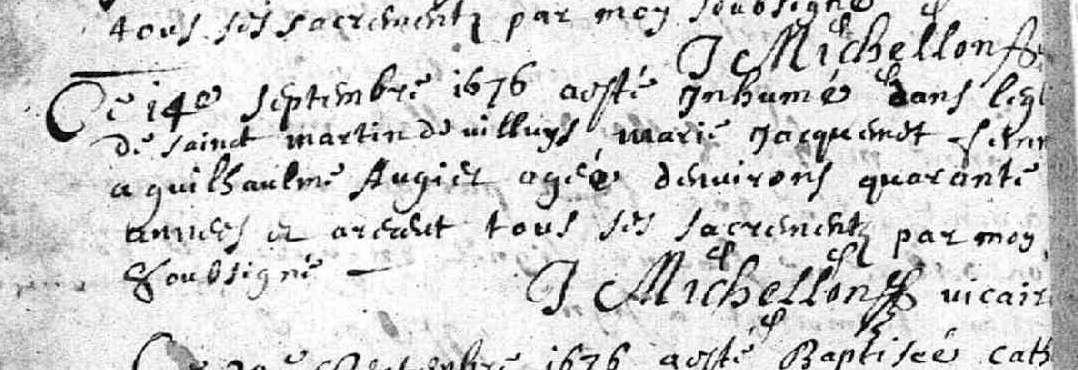 tous ses sacrementz par moy soubsigné
J Michellon
Ce 14e septembre 1676 a esté Inhumé dans legl
de sainct martin de villurs marie Jacquemet fem
a guilhaulme Augier agée denvirons quarante
annees et a receut tous ses sacrementz par moy
soubsigné
J Michellon vicair
septembre 1676 a esté Baptisée cath